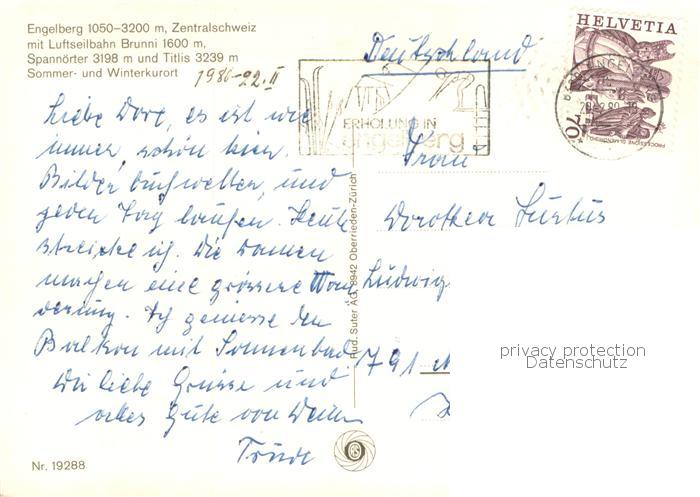 Engelberg 1050–3200 m, Zentralschweiz
mit Luftseilbahn Brunni 1600 m,
Spannörter 3198 m und Titlis 3239 m
Sommer- und Winterkurort
1980-22.II
Liebe Dore, es ist wie
immer, schön hier.
Bilder und
jeden Tag laufen. Heute
streicke ich. Die Damen
machen eine grössere Wan
derung. Ich geniesse den
Balkon mit Sonnenbad
Liebe Grüsse und
alles Gute von Deiner
Trude
Nr. 19288
Rud. Suter AG, 8942 Oberrieden-Zürich
Deutschland
ERHOLUNG IN
engelberg
HELVETIA
70
Frau
Dorothea
Ludwig
791
privacy protection
Datenschutz